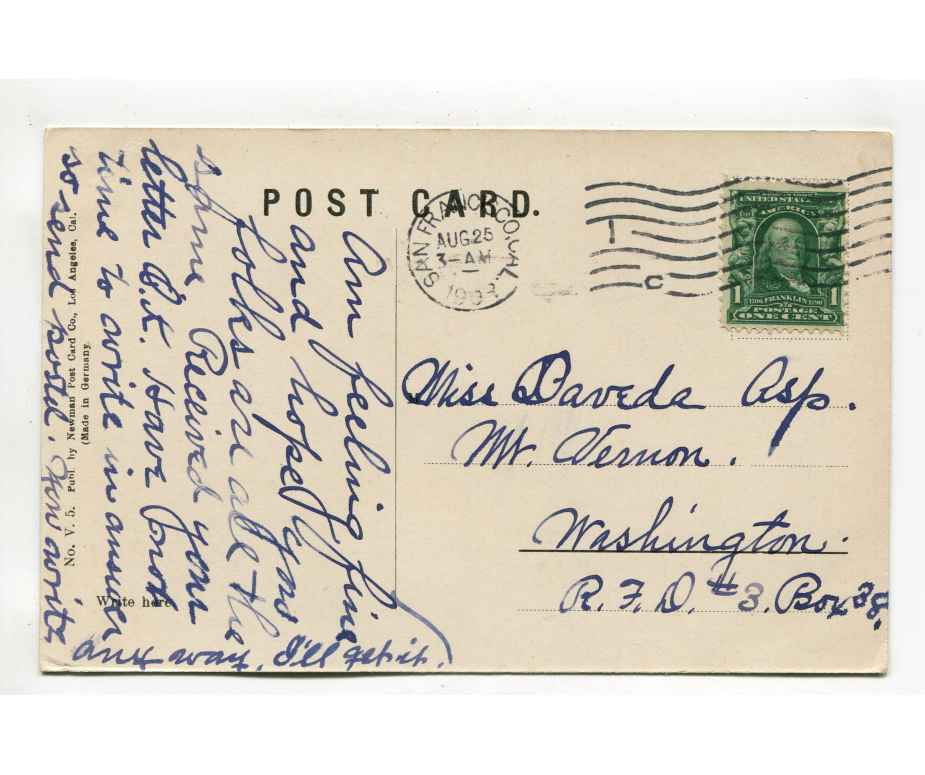 POST CARD.
SAN FRANCISCO, CAL.
AUG 25
3-AM
1
C
UNITED STATES
OF AMERICA
1706 FRANKLIN 1790
1 POSTAGE 1
ONE CENT
Am feeling fine
and hope you
folks are all the
same. Received your
letter O.K. Have not
time to write in answer
so send postal. You write
any way. I'll get it.
Miss Daveda Asp.
Mt. Vernon.
Washington.
R.F.D. #3. Box 38.
No. V. 5. Publ. by Newman Post Card Co., Los Angeles, Cal.
(Made in Germany.
Write here